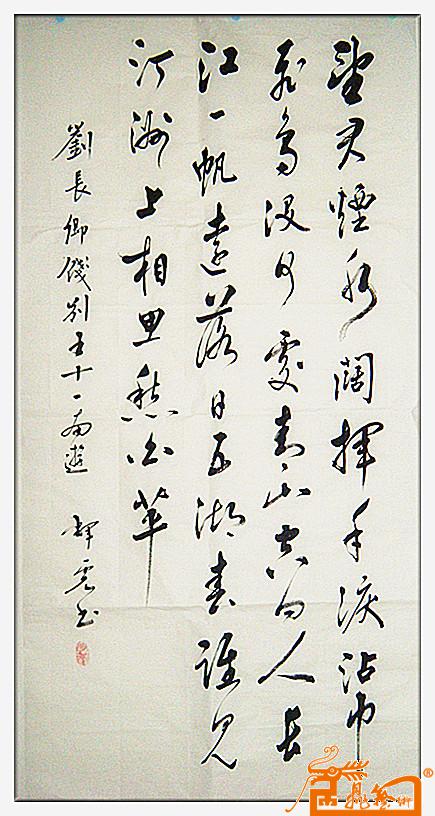 望君煙水闊揮手淚沾巾
飛鳥没何處青山空向人長
江一帆遠落日五湖春誰見
汀洲上相思愁白苹
劉長卿餞別王十一南遊 輝雲书
藝術
®